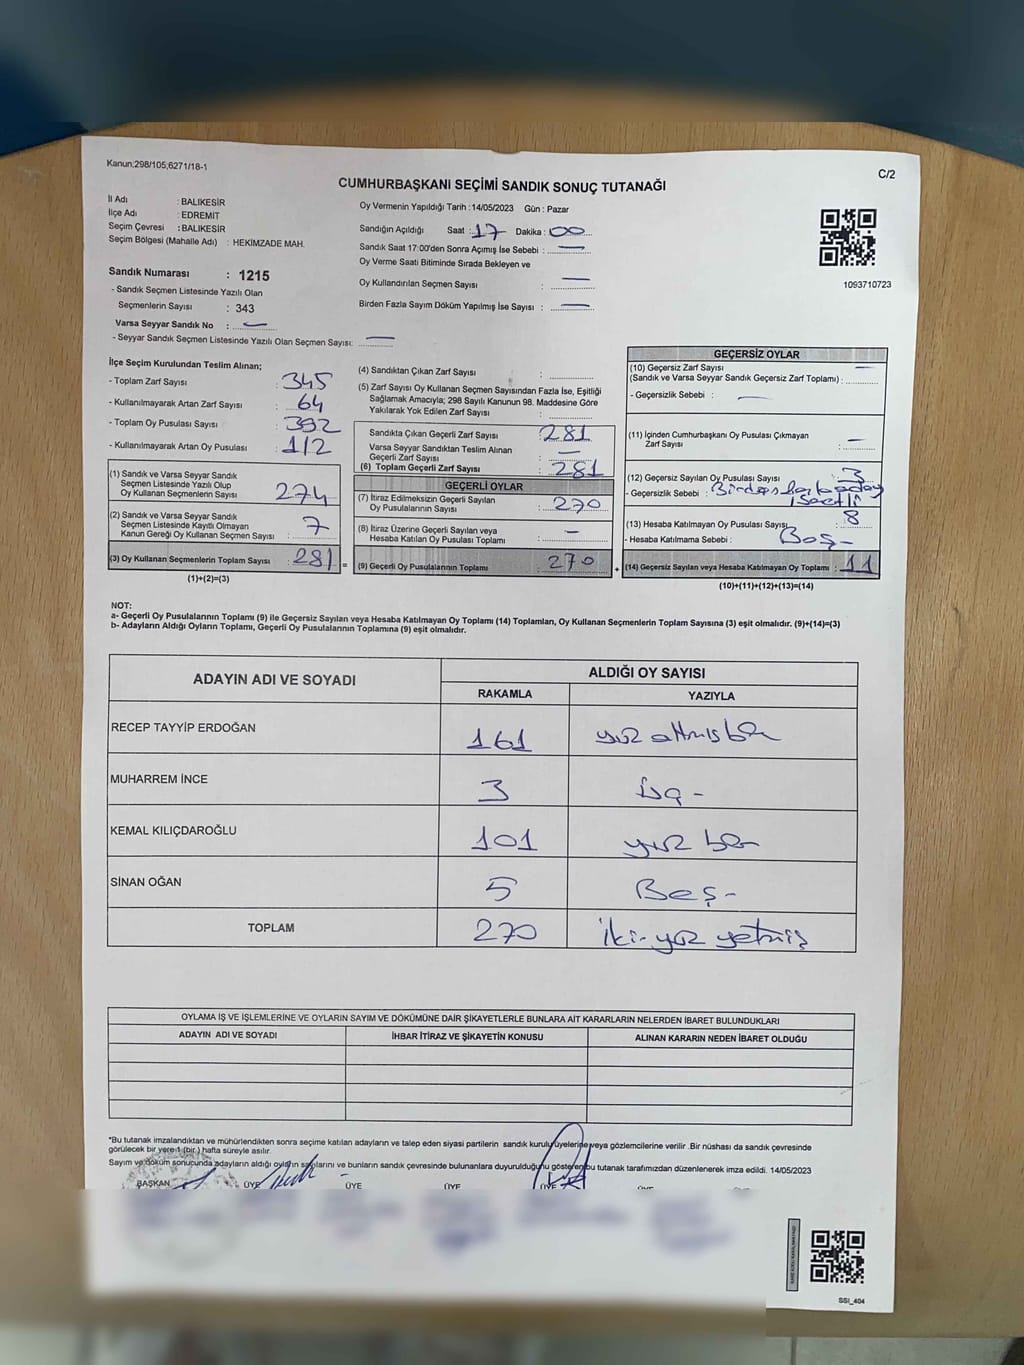 Kanun:298/105,6271/18-1
C/2
CUMHURBAŞKANI SEÇİMİ SANDIK SONUÇ TUTANAĞI
İl Adı : BALIKESİR
İlçe Adı : EDREMIT
Seçim Çevresi : BALIKESİR
Seçim Bölgesi (Mahalle Adı) : HEKİMZADE MAH.
Oy Vermenin Yapıldığı Tarih :14/05/2023 Gün : Pazar
Sandığın Açıldığı Saat : 17 Dakika : 00
Sandık Saat 17:00'den Sonra Açımış İse Sebebi : —
Oy Verme Saati Bitiminde Sırada Bekleyen ve
Oy Kullandırılan Seçmen Sayısı : —
Birden Fazla Sayım Döküm Yapılmış İse Sayısı : —
1093710723
Sandık Numarası : 1215
- Sandık Seçmen Listesinde Yazılı Olan
Seçmenlerin Sayısı : 343
Varsa Seyyar Sandık No : —
- Seyyar Sandık Seçmen Listesinde Yazılı Olan Seçmen Sayısı: —
İlçe Seçim Kurulundan Teslim Alınan;
- Toplam Zarf Sayısı : 345
- Kullanılmayarak Artan Zarf Sayısı : 64
- Toplam Oy Pusulası Sayısı : 392
- Kullanılmayarak Artan Oy Pusulası : 112
(1) Sandık ve Varsa Seyyar Sandık
Seçmen Listesinde Yazılı Olup
Oy Kullanan Seçmenlerin Sayısı : 274
(2) Sandık ve Varsa Seyyar Sandık
Seçmen Listesinde Kayıtlı Olmayan
Kanun Gereği Oy Kullanan Seçmen Sayısı : 7
(3) Oy Kullanan Seçmenlerin Toplam Sayısı : 281 =
(1)+(2)=(3)
(4) Sandıktan Çıkan Zarf Sayısı :
(5) Zarf Sayısı Oy Kullanan Seçmen Sayısından Fazla İse, Eşitliği
Sağlamak Amacıyla; 298 Sayılı Kanunun 98. Maddesine Göre
Yakılarak Yok Edilen Zarf Sayısı :
Sandıkta Çıkan Geçerli Zarf Sayısı : 281
Varsa Seyyar Sandıktan Teslim Alınan
Geçerli Zarf Sayısı : —
(6) Toplam Geçerli Zarf Sayısı : 281
GEÇERLİ OYLAR
(7) İtiraz Edilmeksizin Geçerli Sayılan
Oy Pusulalarının Sayısı : 270
(8) İtiraz Üzerine Geçerli Sayılan veya
Hesaba Katılan Oy Pusulası Toplamı : —
(9) Geçerli Oy Pusulalarının Toplamı : 270 +
GEÇERSİZ OYLAR
(10) Geçersiz Zarf Sayısı
(Sandık ve Varsa Seyyar Sandık Geçersiz Zarf Toplamı) : —
- Geçersizlik Sebebi : —
(11) İçinden Cumhurbaşkanı Oy Pusulası Çıkmayan
Zarf Sayısı : —
(12) Geçersiz Sayılan Oy Pusulası Sayısı : 3
- Geçersizlik Sebebi :
(13) Hesaba Katılmayan Oy Pusulası Sayısı : 8
- Hesaba Katılmama Sebebi : Boş-
(14) Geçersiz Sayılan veya Hesaba Katılmayan Oy Toplamı : 11
(10)+(11)+(12)+(13)=(14)
NOT:
a- Geçerli Oy Pusulalarının Toplamı (9) ile Geçersiz Sayılan veya Hesaba Katılmayan Oy Toplamı (14) Toplamları, Oy Kullanan Seçmenlerin Toplam Sayısına (3) eşit olmalıdır. (9)+(14)=(3)
b- Adayların Aldığı Oyların Toplamı, Geçerli Oy Pusulalarının Toplamına (9) eşit olmalıdır.
ADAYIN ADI VE SOYADI ALDIĞI OY SAYISI
RAKAMLA YAZIYLA
RECEP TAYYIP ERDOĞAN 161 yüz altmış bir
MUHARREM İNCE 3 üç -
KEMAL KILIÇDAROĞLU 101 yüz bir
SİNAN OĞAN 5 Beş-
TOPLAM 270 iki-yüz yetmiş
OYLAMA İŞ VE İŞLEMLERİNE VE OYLARIN SAYIM VE DÖKÜMÜNE DAİR ŞİKAYETLERLE BUNLARA AİT KARARLARIN NELERDEN İBARET BULUNDUKLARI
ADAYIN ADI VE SOYADI İHBAR İTİRAZ VE ŞİKAYETİN KONUSU ALINAN KARARIN NEDEN İBARET OLDUĞU
*Bu tutanak imzalandıktan ve mühürlendikten sonra seçime katılan adayların ve talep eden siyasi partilerin sandık kurulu üyelerine veya gözlemcilerine verilir .Bir nüshası da sandık çevresinde
görülecek bir yere 1 (bir ) hafta süreyle asılır.
Sayım ve döküm sonucunda adayların aldığı oyların sayılarını ve bunların sandık çevresinde bulunanlara duyurulduğunu gösteren bu tutanak tarafımızdan düzenlenerek imza edildi. 14/05/2023
BAŞKAN ÜYE ÜYE ÜYE ÜYE ÜYE
SSI_404